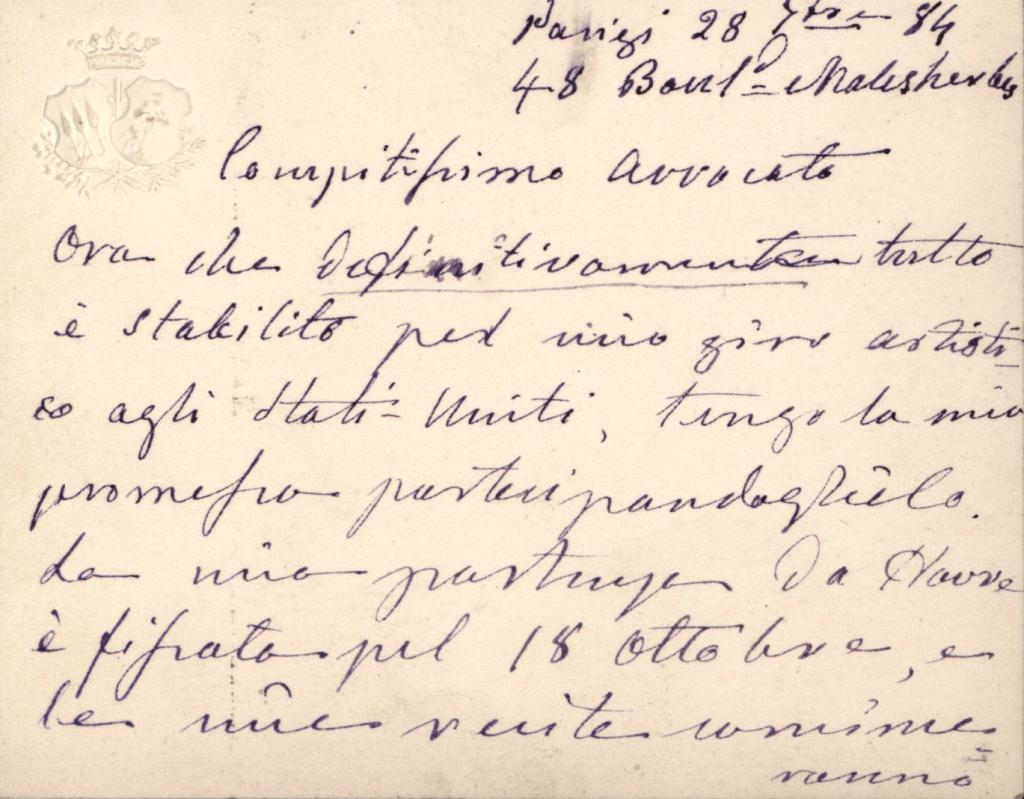 Parigi 28 7bre 84
48 Boul.d Malesherbes
Compitissimo Avvocato
Ora che definitivamente tutto
è stabilito pel mio giro artisti-
co agli Stati-Uniti, tengo la mia
promessa partecipandoglielo.
La mia partenza da Havre
è fissata pel 18 Ottobre, e
le mie recite comince
ranno